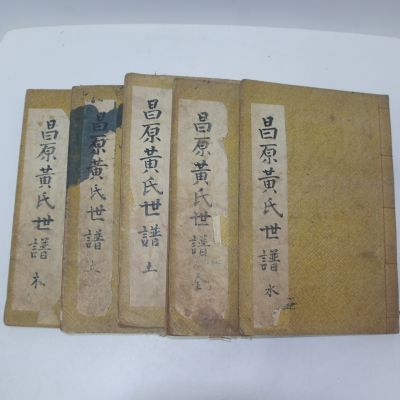 昌原黃氏世譜 木
昌原黃氏世譜 火
昌原黃氏世譜 土
昌原黃氏世譜 金
昌原黃氏世譜 水